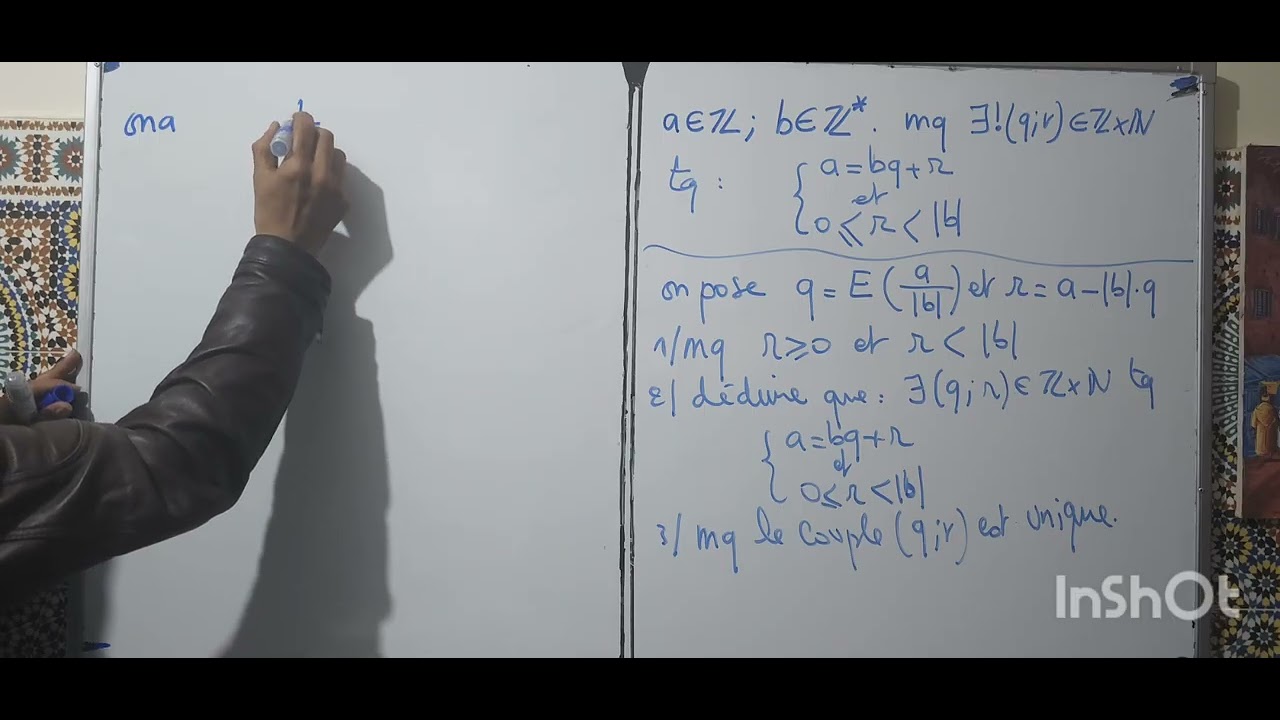 on a
a∈ℤ ; b∈ℤ*. mq ∃!(q;r)∈ℤ×ℕ
tq : { a=bq+r
et
0≤r<|b|
on pose q=E(a/|b|) et r=a-|b|.q
1/ mq r≥0 et r<|b|
2/ déduire que : ∃(q;r)∈ℤ×ℕ tq
{ a=bq+r
et
0≤r<|b|
3/ mq le couple (q;r) est unique.
InShOt